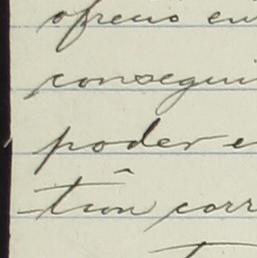 ofreció en
consegui
poder e
tión corr